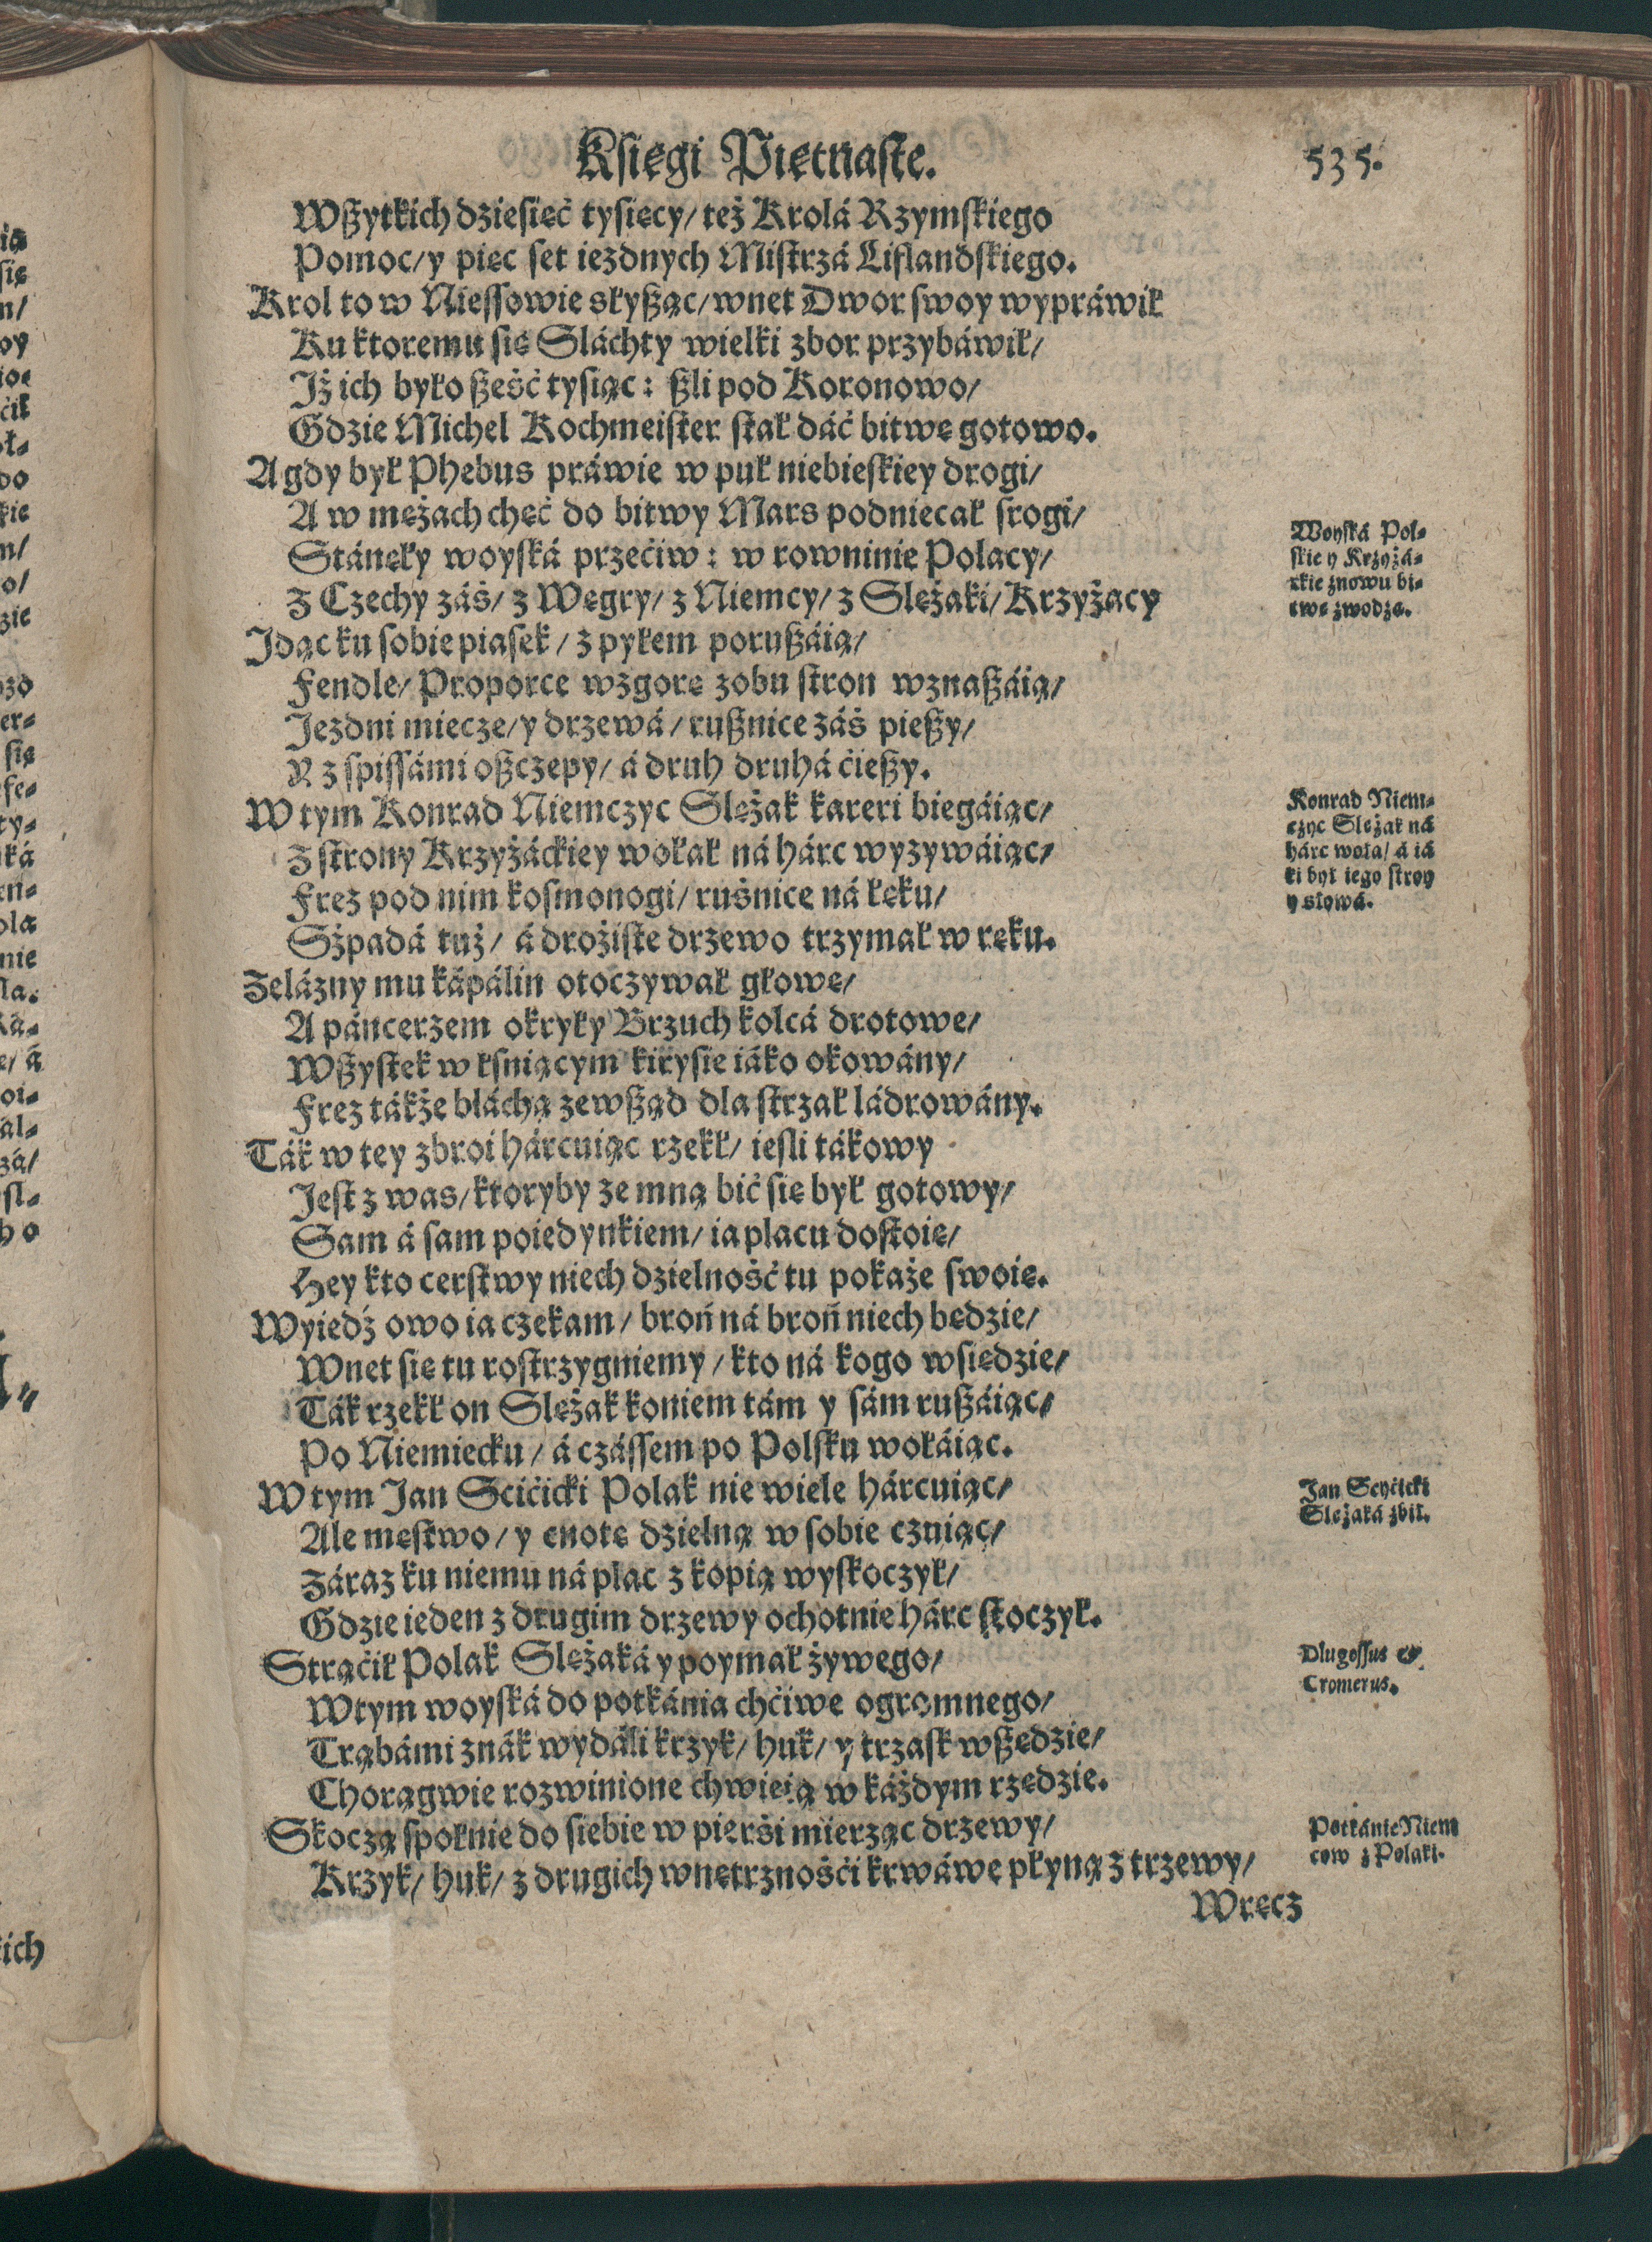 Księgi Piętnaste.
535.
Wßytkich dzieſięć tyſięcy/ też Krolá Rzymſkiego
Pomoc/ y pięc ſet iezdnych Miſtrzá Liflandſkiego.
Krol to w Nieſſowie słyßąc/ wnet Dwor ſwoy wypráwił
Ku ktoremu się Sláchty wielki zbor przybáwił/
Iż ich było ßeść tyſiąc: ßli pod Koronowo/
Gdzie Michel Kochmeiſter ſtał dáć bitwę gotowo.
A gdy był Phebus práwie w puł niebieſkiey drogi/
A w mężach chęć do bitwy Mars podniecał ſrogi/
Stánęły woyſká przećiw: w rowninie Polacy/
Z Czechy záś/ z Węgry/ z Niemcy/ z Slężaki/ Krzyżacy
Idąc ku ſobie piaſek/ z pyłem porußáią/
Fendle/ Proporce wzgorę zobu ſtron wznaßáią/
Iezdni miecze/ y drzewá/ rußnice záś pießy/
R z ſpiſſámi oßczepy/ á druh druhá ćießy.
W tym Konrad Niemczyc Slężak kareri biegáiąc/
Z ſtrony Krzyżáckiey wołał ná hárc wyzywáiąc/
Frez pod nim koſmonogi/ ruśnicę ná łęku/
Sżpadá tuż/ á drożiſte drzewo trzymał w ręku.
Zelázny mu kápálin otoczywał głowę/
A páncerzem okryły Brzuch kolcá drotowe/
Wßyſtek w kſniącym kirysie iáko okowány/
Frez tákże bláchą zewßąd dla ſtrzał ládrowány.
Ták w tey zbroi hárcuiąc rzekł/ ieſli tákowy
Ieſt z was/ ktoryby ze mną bić się był gotowy/
Sam á ſam poiedynkiem/ ia placu doſtoię/
Hey kto cerſtwy niech dzielność tu pokaże ſwoię.
Wyiedź owo ia czekam/ broń ná broń niech będzie/
Wnet się tu roſtrzygniemy/ kto ná kogo wsiędzie/
Ták rzekł on Slężak koniem tám y ſám rußáiąc/
Po Niemiecku/ á czáſſem po Polſku wołáiąc.
W tym Jan Scićicki Polak nie wiele hárcuiąc/
Ale męſtwo/ y cnotę dzielną w ſobie czuiąc/
Záraz ku niemu ná plac z kopią wyſkoczył/
Gdzie ieden z drugim drzewy ochotnie hárc ſtoczył.
Strąćił Polak Slężaká y poymał żywego/
Wtym woyſká do potkánia chćiwe ogromnego/
Trąbámi znák wydáli krzyk/ huk/ y trzaſk wßędzie/
Chorągwie rozwinione chwieią w káżdym rzędzie.
Skoczą ſpołnie do ſiebie w pierśi mierząc drzewy/
Krzyk/ huk/ z drugich wnętrznośći krwáwe płyną z trzewy/
Wręcz
Woyſká Pol⸗
ſkie y Krzyżá⸗
ckie znowu bi⸗
twę zwodzą.
Konrad Niem⸗
czyc Slężak ná
hárc woła/ á iá
ki był iego ſtroy
y słowá.
Jan Scyćicki
Slężaká zbił.
Dlugoſſus &
Cromerus.
Potkánie Niem
cow z Polaki.